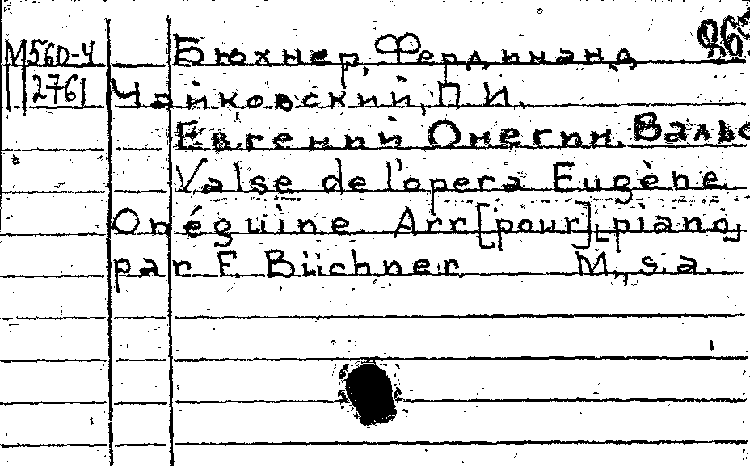 М560-4 Бюхнер, Фердинанд
2761 Чайковский, П. И.
Евгений Онегин. Вальс
Valse de l'opera Eugène
Onéguine. Arr [pour] piano
par F. Büchner. M., s.a.